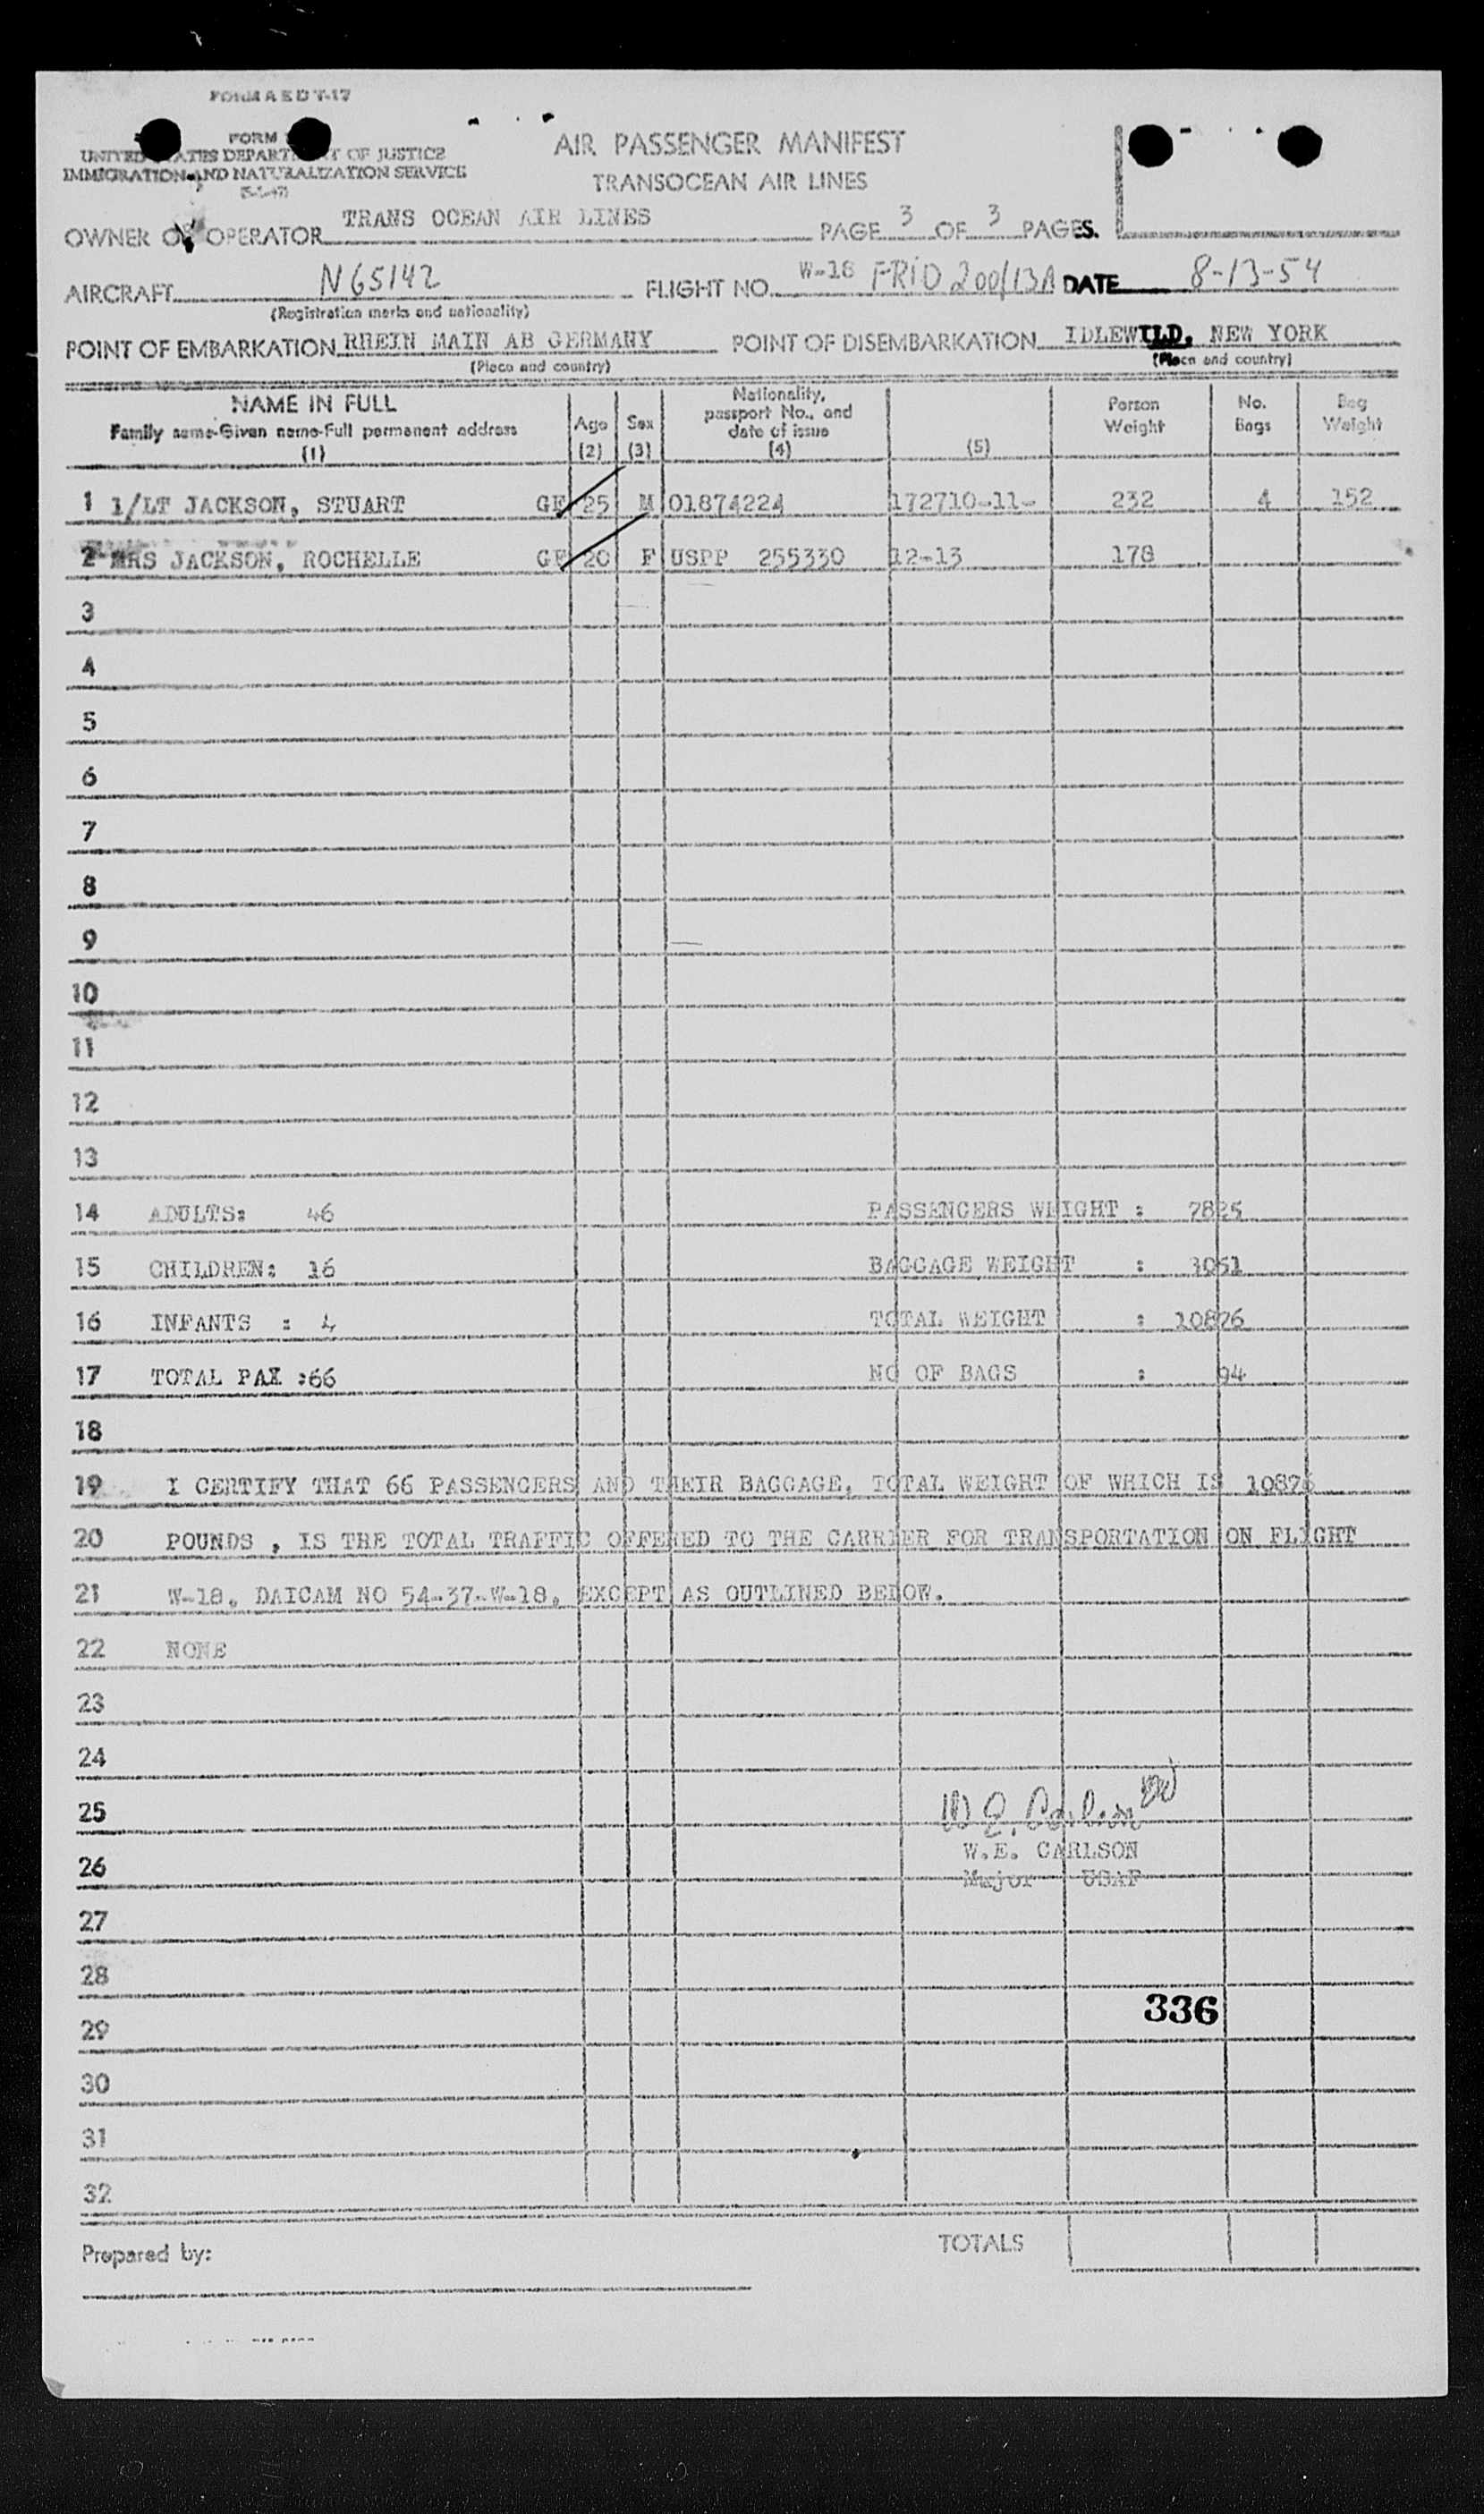 FORM A E D T-17
FORM
UNITED STATES DEPARTMENT OF JUSTICE
IMMIGRATION AND NATURALIZATION SERVICE
AIR PASSENGER MANIFEST
TRANSOCEAN AIR LINES
OWNER OR OPERATOR TRANS OCEAN AIR LINES PAGE 3 OF 3 PAGES.
AIRCRAFT N65142 FLIGHT NO. W-18 FRIO 200/13A DATE 8-13-54
(Registration marks and nationality)
POINT OF EMBARKATION RHEIN MAIN AB GERMANY POINT OF DISEMBARKATION IDLEWILD, NEW YORK
(Place and country) (Place and country)
NAME IN FULL
Family name-Given name-Full permanent address
(1)
Age
(2)
Sex
(3)
Nationality,
passport No., and
date of issue
(4)
(5)
Person
Weight
No.
Bags
Bag
Weight
1 1/LT JACKSON, STUART GE 25 M 01874224 172710-11- 232 4 152
2 MRS JACKSON, ROCHELLE GE 20 F USPP 255330 12-13 178
3
4
5
6
7
8
9
10
11
12
13
14 ADULTS: 46 PASSENGERS WEIGHT : 7825
15 CHILDREN: 16 BAGGAGE WEIGHT : 3051
16 INFANTS : 4 TOTAL WEIGHT : 10876
17 TOTAL PAX :66 NO OF BAGS : 94
18
19 I CERTIFY THAT 66 PASSENGERS AND THEIR BAGGAGE, TOTAL WEIGHT OF WHICH IS 10876
20 POUNDS , IS THE TOTAL TRAFFIC OFFERED TO THE CARRIER FOR TRANSPORTATION ON FLIGHT
21 W-18, DAICAM NO 54-37-W-18, EXCEPT AS OUTLINED BELOW.
22 NONE
23
24
25 W E. Carlson
26 W.E. CARLSON
Major USAF
27
28
336
29
30
31
32
Prepared by: TOTALS